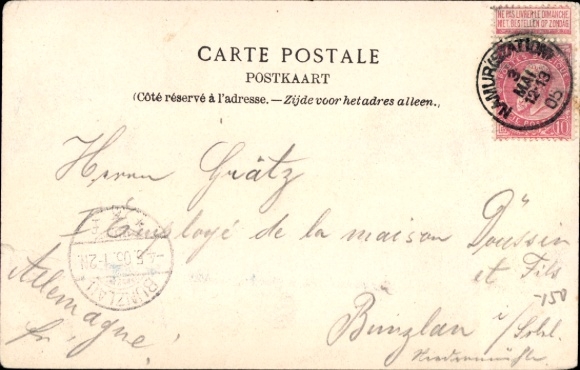 NE PAS LIVRER LE DIMANCHE
NIET BESTELLEN OP ZONDAG
CARTE POSTALE
POSTKAART
(Côté réservé à l'adresse. — Zijde voor het adres alleen.)
NAMUR (STATION)
3
MAI
12-13
05
10
Herrn Grätz
Employé de la maison Doussin
et Fils
150
Bunzlau i/Schl.
Niedermühle
Allemagne!
BUNZLAU